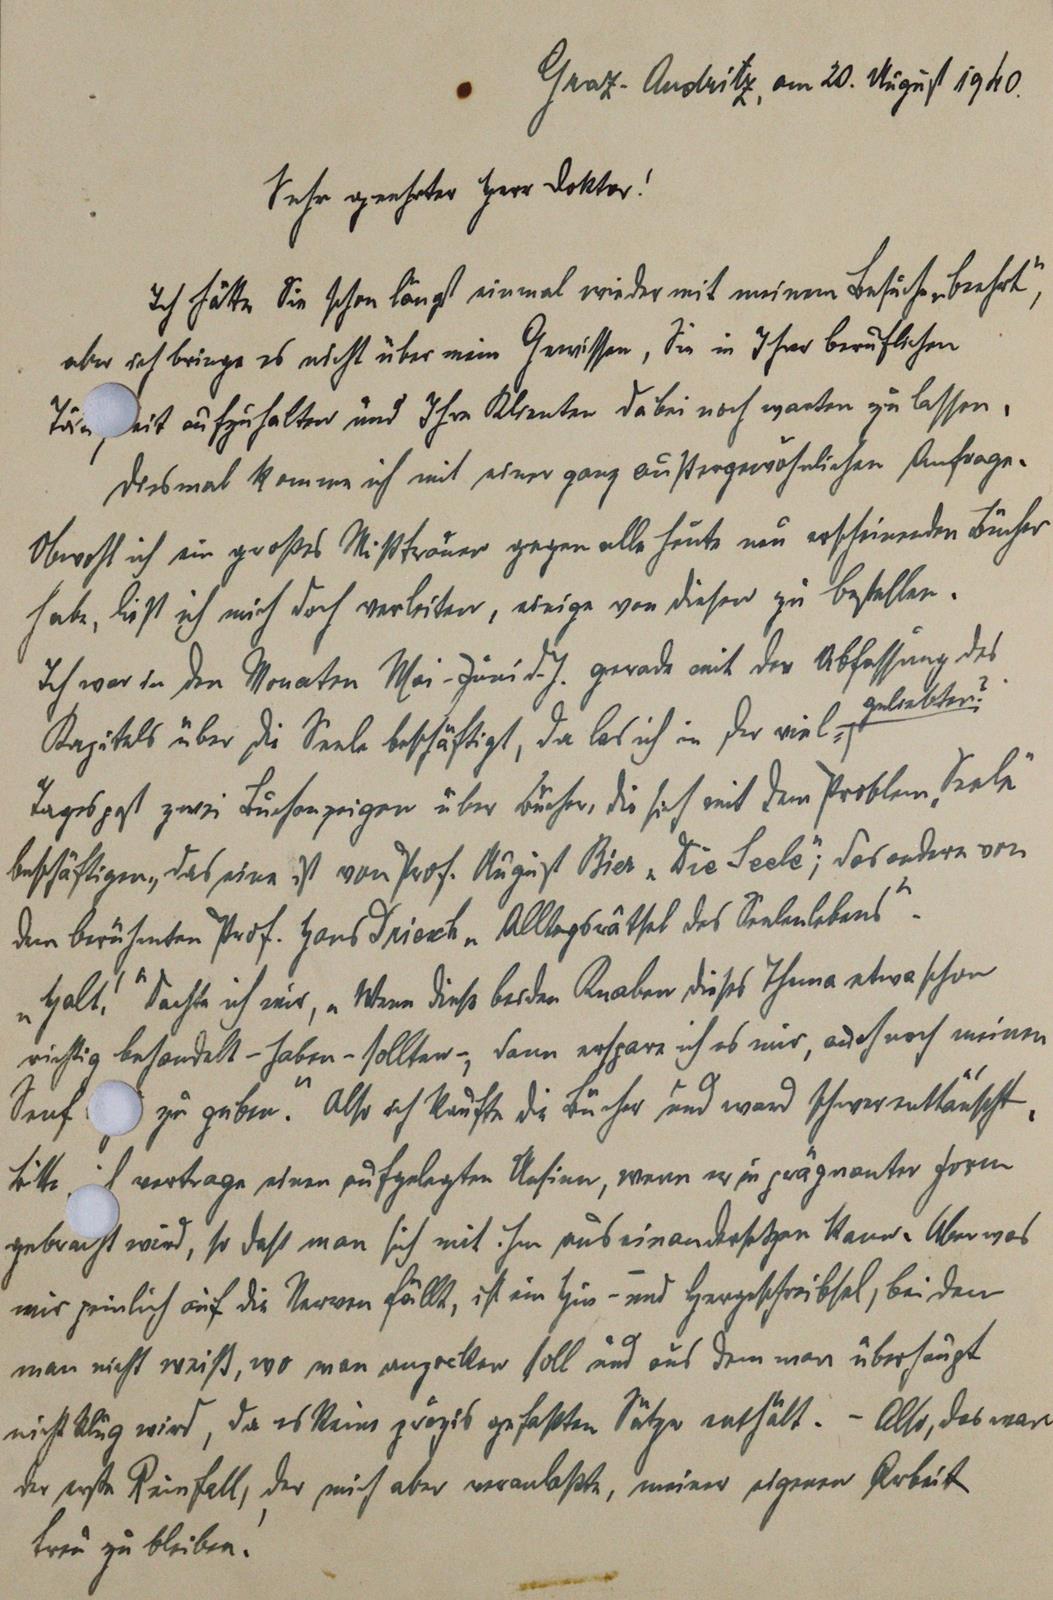 Graz-Andritz, am 20. August 1940.
Sehr geehrter Herr Doktor!
Ich hätte Sie schon längst einmal wieder mit meinem Besuche „beehrt“,
aber ich bringe es nicht über mein Gewissen, Sie in Ihrer beruflichen
Tä eit aufzuhalten und Ihre Klienten dabei noch warten zu lassen.
Diesmal komme ich mit einer ganz außergewöhnlichen Anfrage.
Obwohl ich ein großes Mißtrauen gegen alle heute neu erscheinenden Bücher
habe, ließ ich mich doch verleiten, einige von diesen zu bestellen.
Ich war in den Monaten Mai-Juni d.J. gerade mit der Abfassung des
Kapitels über die Seele beschäftigt, da las ich in der viel= geliebten?
Tagespost zwei Buchanzeigen über Bücher, die sich mit dem Problem „Seele“
beschäftigen, das eine ist von Prof. August Bier „Die Seele“; das andere von
dem berühmten Prof. Hans Driesch „Alltagsrätsel des Seelenlebens“.
„Halt!“ dachte ich mir, „Wenn diese beiden Knaben dieses Thema etwa schon
richtig behandelt - haben - sollten -, dann erspare ich es mir, auch noch meinen
Senf zu geben.“ Also ich kaufte die Bücher und ward schwer enttäuscht.
Bitte, ich vertrage einen aufgelegten Unsinn, wenn er in prägnanter Form
gebracht wird, so daß man sich mit ihm auseinandersetzen kann. Aber was
mir peinlich auf die Nerven fällt, ist ein Hin- und Hergeschreibsel, bei dem
man nicht weiß, wo man anpacken soll und aus dem man überhaupt
nicht klug wird, da es keine präzis gefaßten Sätze enthält. - Also, das war
der erste Reinfall, der mich aber veranlaßte, meiner eigenen Arbeit
treu zu bleiben!